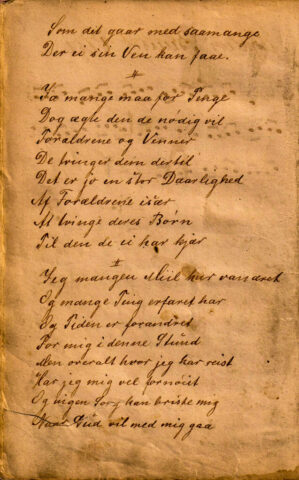 Som det gaar med saamange
Der ei sin Ven kan faae.
Ja mange maa for Penge
Dog ægte den de nødig vil
Foraldrene og Venner
De tvinger dem dertil
Det er jo en stor Daarlighed
Af Foraldrene især
At tvinge deres Børn
Til den de ei har kjær
Jeg mangen Miil har vandret
Og mange Ting erfaret har
Og Tiden er forandret
For mig i denne Stund
Men overalt hvor jeg har reist
Har jeg mig vel fornøiet
Og ingen Sorg kan briste mig
Naar Gud vil med mig gaa